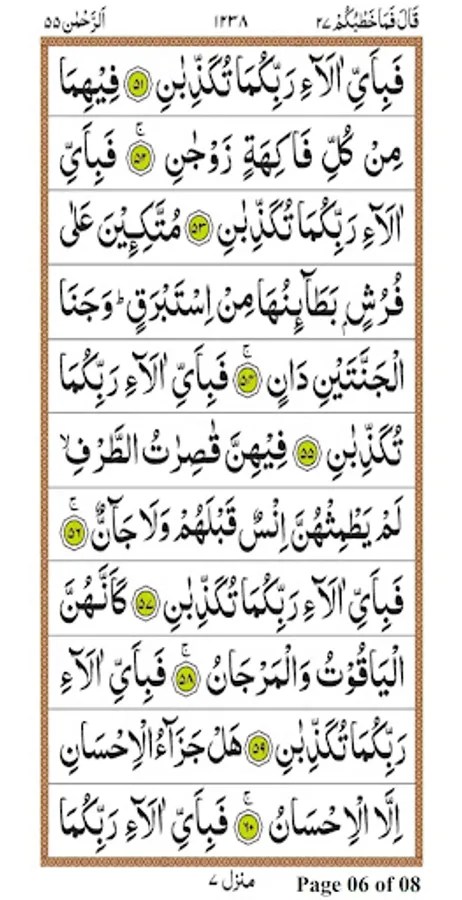 قَالَ فَمَا خَطْبُكُمْ ٢٧ ١٢٣٨ اَلرَّحْمٰن ٥٥
فَبِاَيِّ اٰلَآءِ رَبِّكُمَا تُكَذِّبٰنِ ﴿٥١﴾ فِيْهِمَا
مِنْ كُلِّ فَاكِهَةٍ زَوْجٰنِ ۚ ﴿٥٢﴾ فَبِاَيِّ
اٰلَآءِ رَبِّكُمَا تُكَذِّبٰنِ ﴿٥٣﴾ مُتَّكِـِٕيْنَ عَلٰى
فُرُشٍۭ بَطَآىِٕنُهَا مِنْ اِسْتَبْرَقٍ ؕ وَجَنَا
الْجَنَّتَيْنِ دَانٍ ۚ ﴿٥٤﴾ فَبِاَيِّ اٰلَآءِ رَبِّكُمَا
تُكَذِّبٰنِ ﴿٥٥﴾ فِيْهِنَّ قٰصِرٰتُ الطَّرْفِ ۙ
لَمْ يَطْمِثْهُنَّ اِنْسٌ قَبْلَهُمْ وَلَا جَآنٌّ ۚ ﴿٥٦﴾
فَبِاَيِّ اٰلَآءِ رَبِّكُمَا تُكَذِّبٰنِ ﴿٥٧﴾ كَاَنَّهُنَّ
الْيَاقُوْتُ وَالْمَرْجَانُ ۚ ﴿٥٨﴾ فَبِاَيِّ اٰلَآءِ
رَبِّكُمَا تُكَذِّبٰنِ ﴿٥٩﴾ هَلْ جَزَآءُ الْاِحْسَانِ
اِلَّا الْاِحْسَانُ ۚ ﴿٦٠﴾ فَبِاَيِّ اٰلَآءِ رَبِّكُمَا
منزل ٧ Page 06 of 08